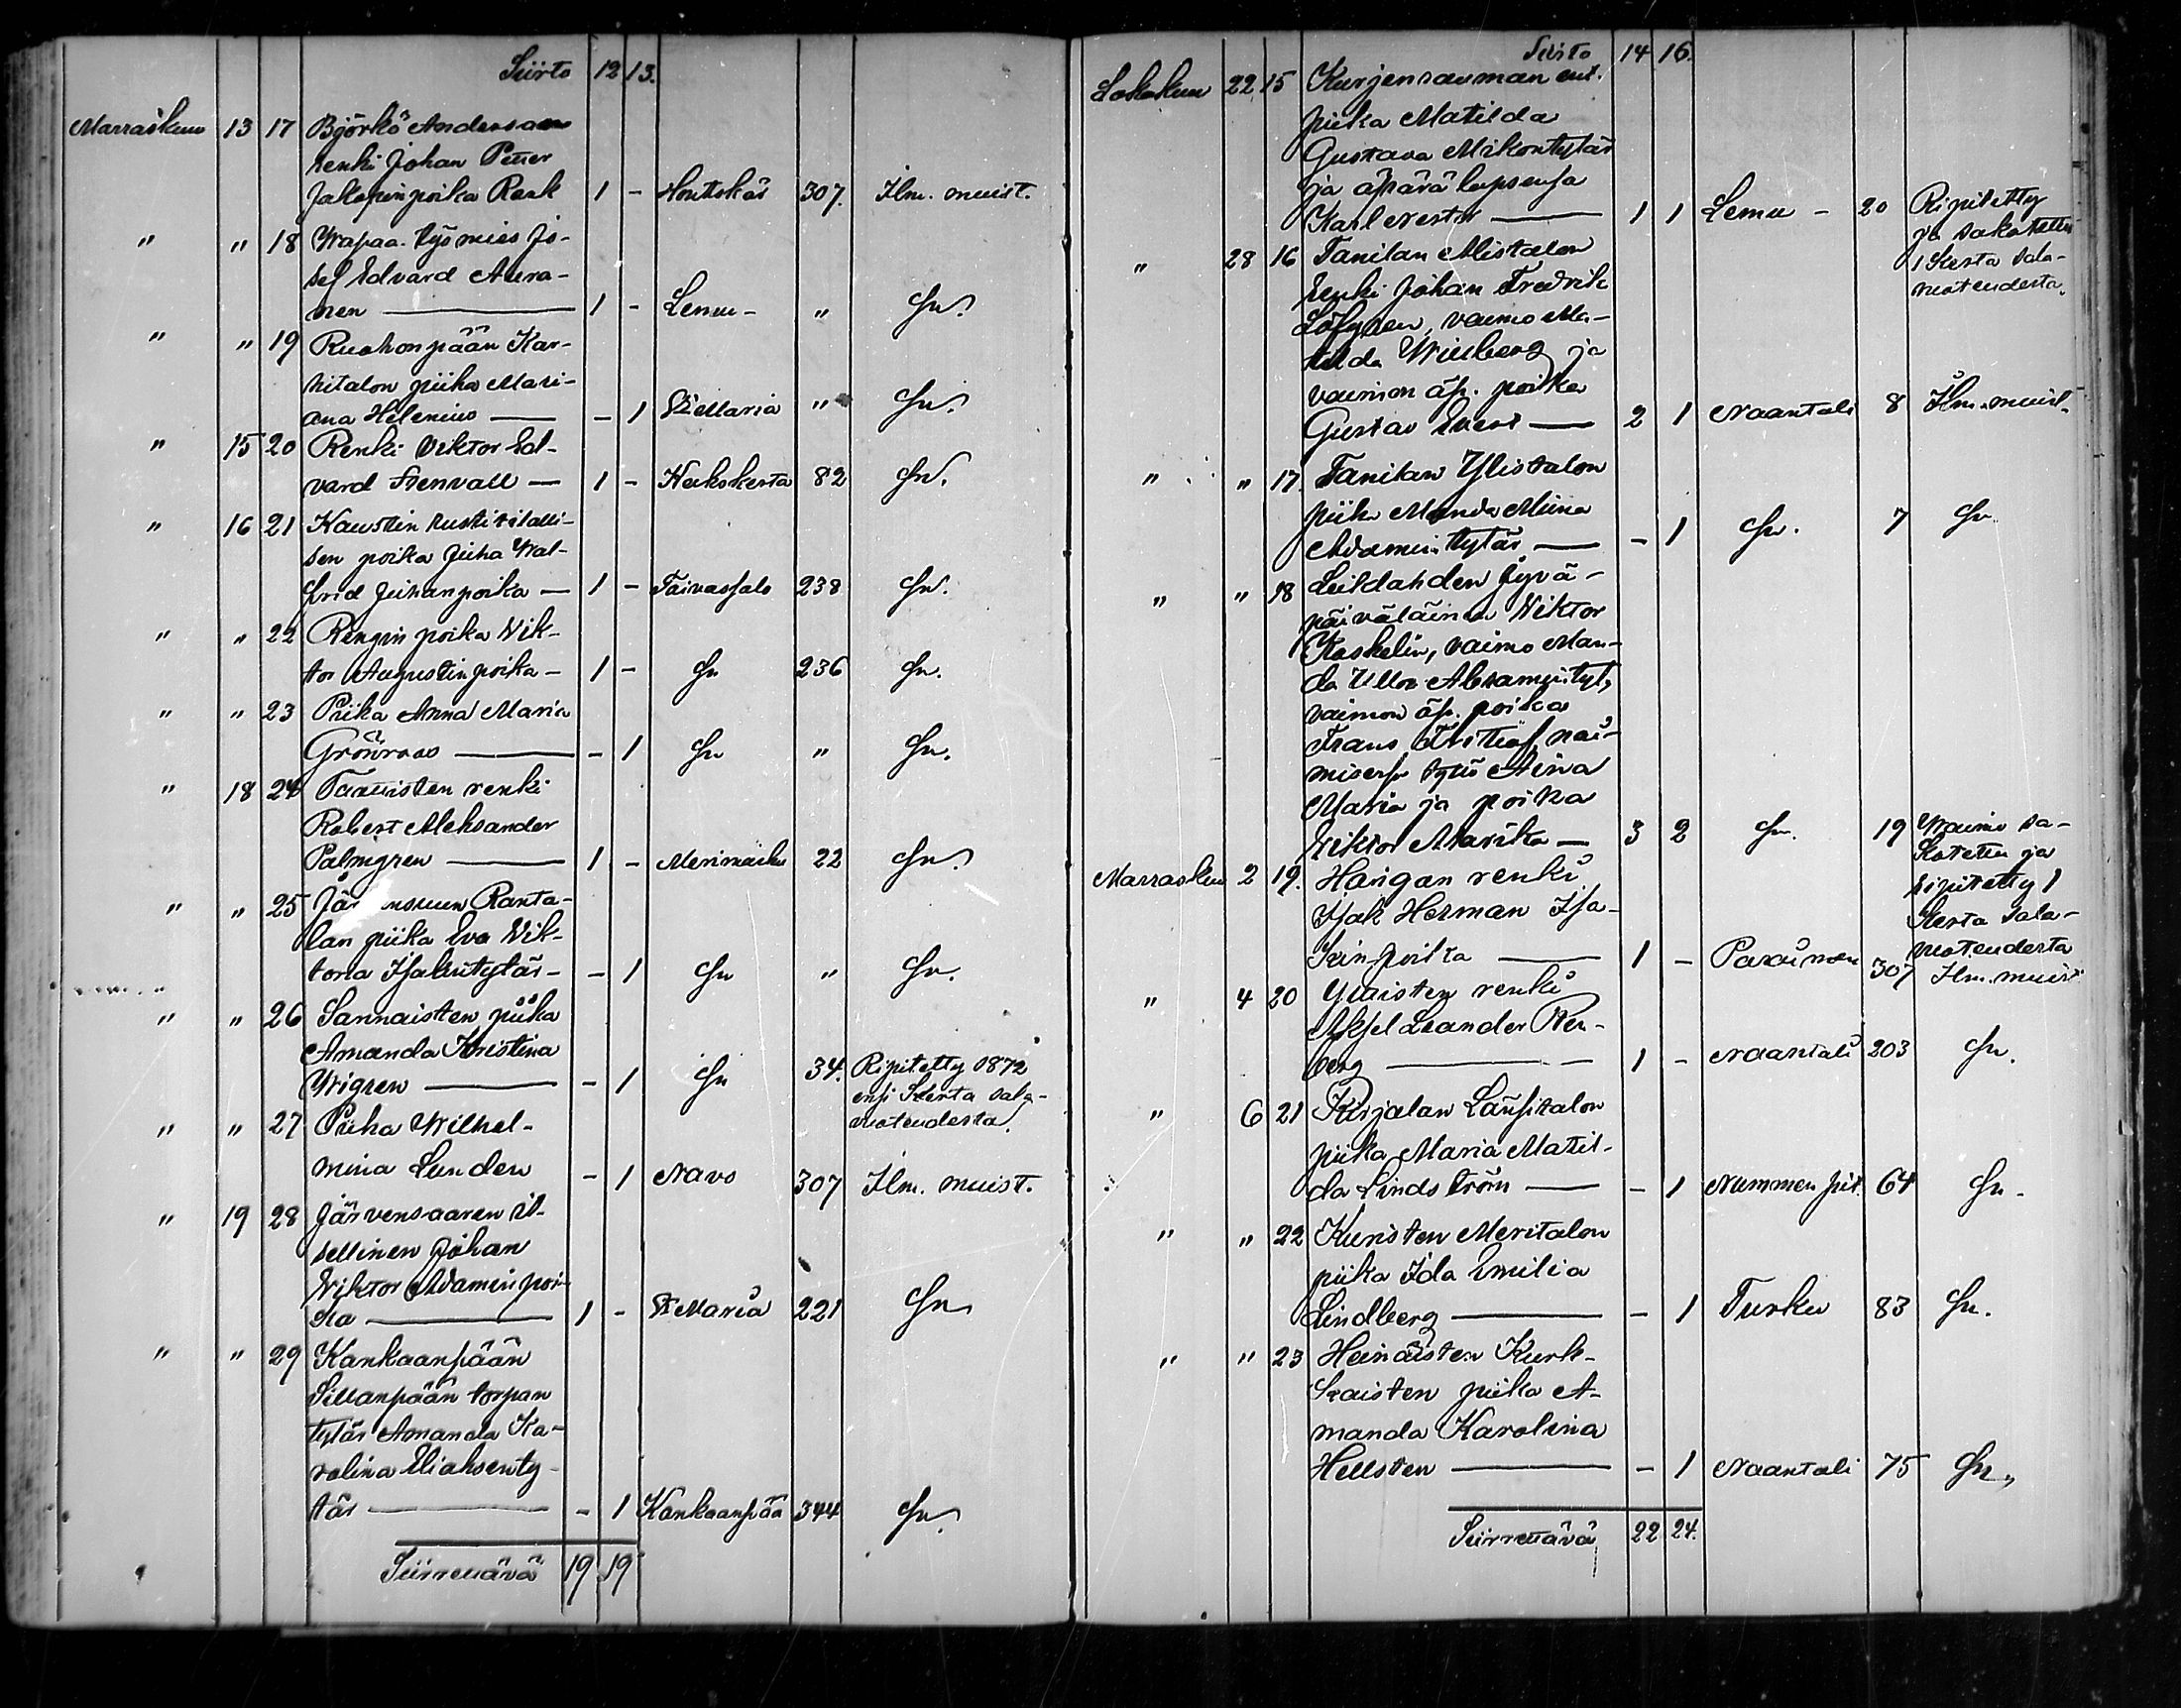 Siirto 12 13.
Marraskuu 13 17 Björkö Anderssan
renki Johan Petter
Jakopinpoika Rask 1 - Houtskär 307. Ilm. muist.
" " 18 Wapaa työmies Jo-
sef Edvard Aura-
nen — 1 - Lemu - " Sn.
" " 19 Ruohonpään Kar-
vitalon piika Mari-
ana Helenius — - 1 St Maria " Sn.
" 15 20 Renki Viktor Ed-
vard Stenvall — 1 - Kakskerta 82 Sn.
" 16 21 Kaustin rustitilalli-
sen poika Juha Wal-
frid Juhanpoika — 1 - Taivassalo 238 Sn.
" " 22 Rengin poika Wik-
tor Augustinpoika - 1 - Sn 236 Sn.
" " 23 Piika Anna Maria
Grönroos — - 1 Sn " Sn.
" 18 24 Tammisten renki
Robert Aleksander
Palmgren — 1 - Merimasku 22 Sn.
" " 25 Jär nsuun Ranta-
lan piika Eva Wik-
toria Isakintytär - - 1 Sn " Sn.
" " 26 Sannaisten piika
Amanda Kristina
Wigren — - 1 Sn 34. Ripitetty 1872
ensi Kerta sala-
vuoteudesta.
" " 27 Piika Wilhel-
mina Lunden - 1 Navo 307 Ilm. muist.
" 19 28 Järvensaaren it-
sellinen Johan
Wiktor Adamin poi-
ka — 1 - St Maria 221 Sn
" " 29 Kankaanpään
Sillanpään torpan
tytär Amanda Ka-
rolina Eliaksenty-
tär — - 1 Kankaanpää 344 Sn.
Siirrettävä 19 19
Siirto 14 16.
Lokakuu 22 15 Kurjenrauman ent.
piika Matilda
Gustava Mikontytär
ja äpärä lapsensa
Karl Nestor — 1 1 Lemu - 20 Ripitetty
ja sakotettu
1 Kerta sala-
vuoteudesta.
" 28 16 Tanilan Alistalon
renki Johan Fredrik
Löfgren, vaimo Ma-
tilda Wiklberg ja
vaimon äp. poika
Gustav Evert — 2 1 Naantali 8 Ilm. muist.
" " 17. Tanilan Ylistalon
piika Manda Miina
Adamintytär — - 1 Sn. 7 Sn.
" " 18 Luikdahden Jyvä-
päiväläinen Wiktor
Koskelin, vaimo Man-
da Ulla Abramintyt.
vaimon äp. poika
Frans Fritiof, nai-
misessa tytö Aina
Maria ja poika
Wiktor Marika — 3 2 Sn. 19 Waimo sa-
kotettu ja
ripitetty 1
Kerta sala-
vuoteudesta
Marraskuu 2 19. Harigan renki
Isak Herman Isa-
kinpoika — 1 - Parainen 307 Ilm. muist
" 4 20 Ylaisten renki
Aksel Leander Ren-
berg — 1 - Naantali 203 Sn.
" 6 21 Kirjalan Lausitalon
piika Maria Matil-
da Lindström — - 1 Nummen pit. 64 Sn.
" " 22 Kuristen Meritalon
piika Ida Emilia
Lindberg — - 1 Turku 83 Sn.
" " 23 Heinäisten Kurk-
kaisten piika A-
manda Karolina
Hellsten — - 1 Naantali 75 Sn.
Siirrettävä 22 24.